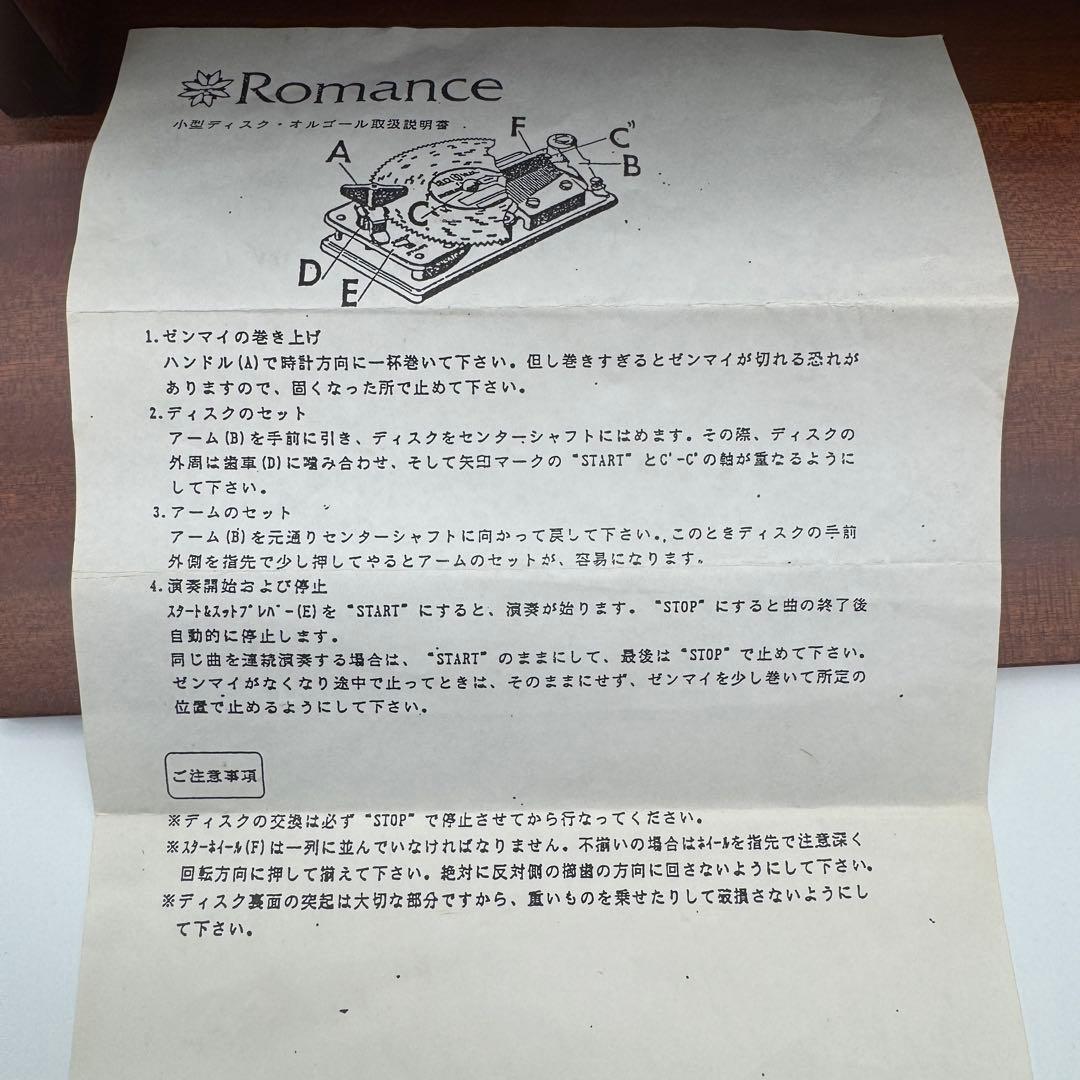 Romance
小型ディスク・オルゴール取扱説明書
F
C"
B
A
C
D
E
1.ゼンマイの巻き上げ
ハンドル(A)で時計方向に一杯巻いて下さい。但し巻きすぎるとゼンマイが切れる恐れが
ありますので、固くなった所で止めて下さい。
2.ディスクのセット
アーム(B)を手前に引き、ディスクをセンターシャフトにはめます。その際、ディスクの
外周は歯車(D)に噛み合わせ、そして矢印マークの"START"とC'-C"の軸が重なるように
して下さい。
3.アームのセット
アーム(B)を元通りセンターシャフトに向かって戻して下さい。このときディスクの手前
外側を指先で少し押してやるとアームのセットが、容易になります。
4.演奏開始および停止
ｽﾀｰﾄ&ｽｯﾄﾌﾟﾚﾊﾞｰ(E)を"START"にすると、演奏が始ります。"STOP"にすると曲の終了後
自動的に停止します。
同じ曲を連続演奏する場合は、"START"のままにして、最後は"STOP"で止めて下さい。
ゼンマイがなくなり途中で止ってときは、そのままにせず、ゼンマイを少し巻いて所定の
位置で止めるようにして下さい。
ご注意事項
※ディスクの交換は必ず"STOP"で停止させてから行なってください。
※ｽﾀｰﾎｲｰﾙ(F)は一列に並んでいなければなりません。不揃いの場合はﾎｲｰﾙを指先で注意深く
回転方向に押して揃えて下さい。絶対に反対側の櫛歯の方向に回さないようにして下さい。
※ディスク裏面の突起は大切な部分ですから、重いものを乗せたりして破損さないようにし
て下さい。